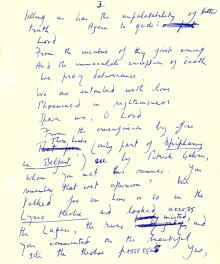 3.
telling us has the unpalatability of bitter
truth Again to quote:
Lord
From the incubus of thy great coming
And the immaculate conception of death
We pray deliverance.
We are entombed with love
Phoenixed in righteousness
Spare us, O Lord
From the emergence by fire.
(only part of Epiphany
in Belfast) by Patrick Galvin,
whom you met this summer. You
remember that wet afternoon? We
talked for an hour or so in the
Lyric theatre and looked across
the Lagan, the river misted,
you commented on the beautiful
site the theatre possesses Yes,